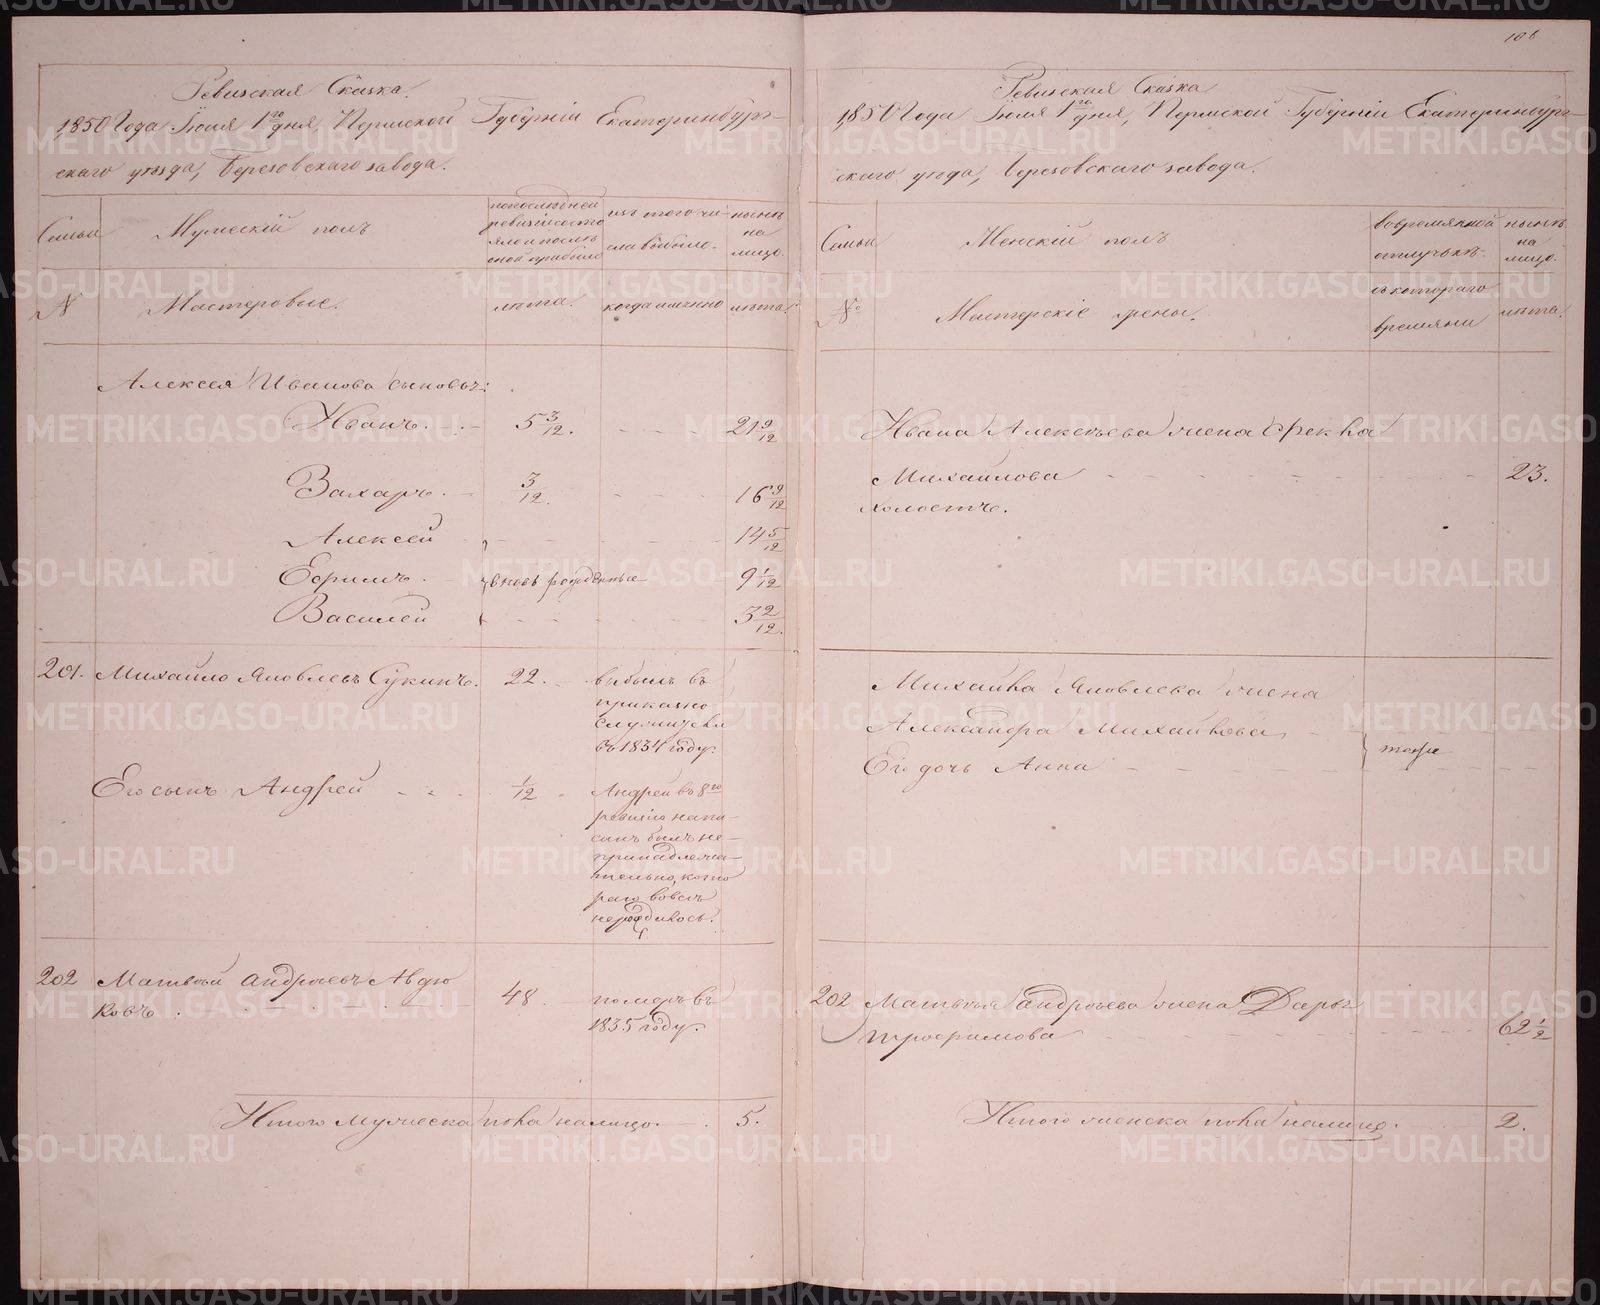 108
Ревизская Сказка.
1850 Года Июля 1го дня, Пермской Губерніи Екатеринбург-
скаго уѣзда, Березовскаго завода.
Семьи
Мужескій полъ
по последней
ревизіи состо
яло и послѣ
оной прибыло
изъ того чи-
сла выбыло.
нынѣ
на
лицо.
N
Мастеровые.
лѣта.
когда именно
лѣта.
Алексея Иванова сыновья:
Иванъ. 5 3/12. 21 9/12
Захаръ. 3/12. 16 9/12
Алексей 14 5/12
Ефимъ. вновь рожденные 9 1/12
Василей 3 2/12.
201. Михайло Яковлевъ Сукинъ. 22. выбылъ въ
приказно
служители
въ 1834 году.
Его сынъ Андрей 1/12 Андрей въ 8ю
ревизію напи-
санъ былъ не-
принадлежа-
тельно, кото
раго вовсѣ
не родилось.
202 Матвей Андреевъ Авдю
ковъ. 48 померъ въ
1835 году.
Итого мужеска пола налицо. 5.
Ревизская Сказка
1850 Года Июля 1го дня, Пермской Губерніи Екатеринбург-
скаго уѣзда, Березовскаго завода.
Семьи
Женскій полъ
во временной
отлучькѣ.
нынѣ
на
лицо.
No
Мастерскіе жены.
съ котораго
времяни
лѣта.
Ивана Алексѣева жена Фекла
Михайлова 23.
холостъ.
Михайла Яковлева жена
Александра Михайлова
тоже
Его дочь Анна
202 Матвея Андреева жена Дарья
Трофимова 62 1/2
Итого женска пола налицо. 2.
METRIKI.GASO-URAL.RU